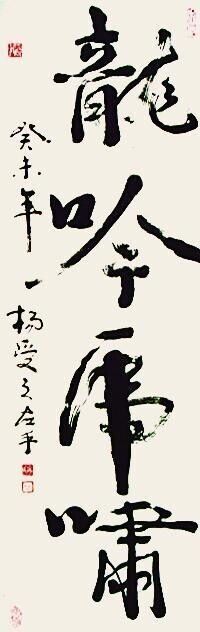 龍吟虎嘯
癸未年
一楊受之左手